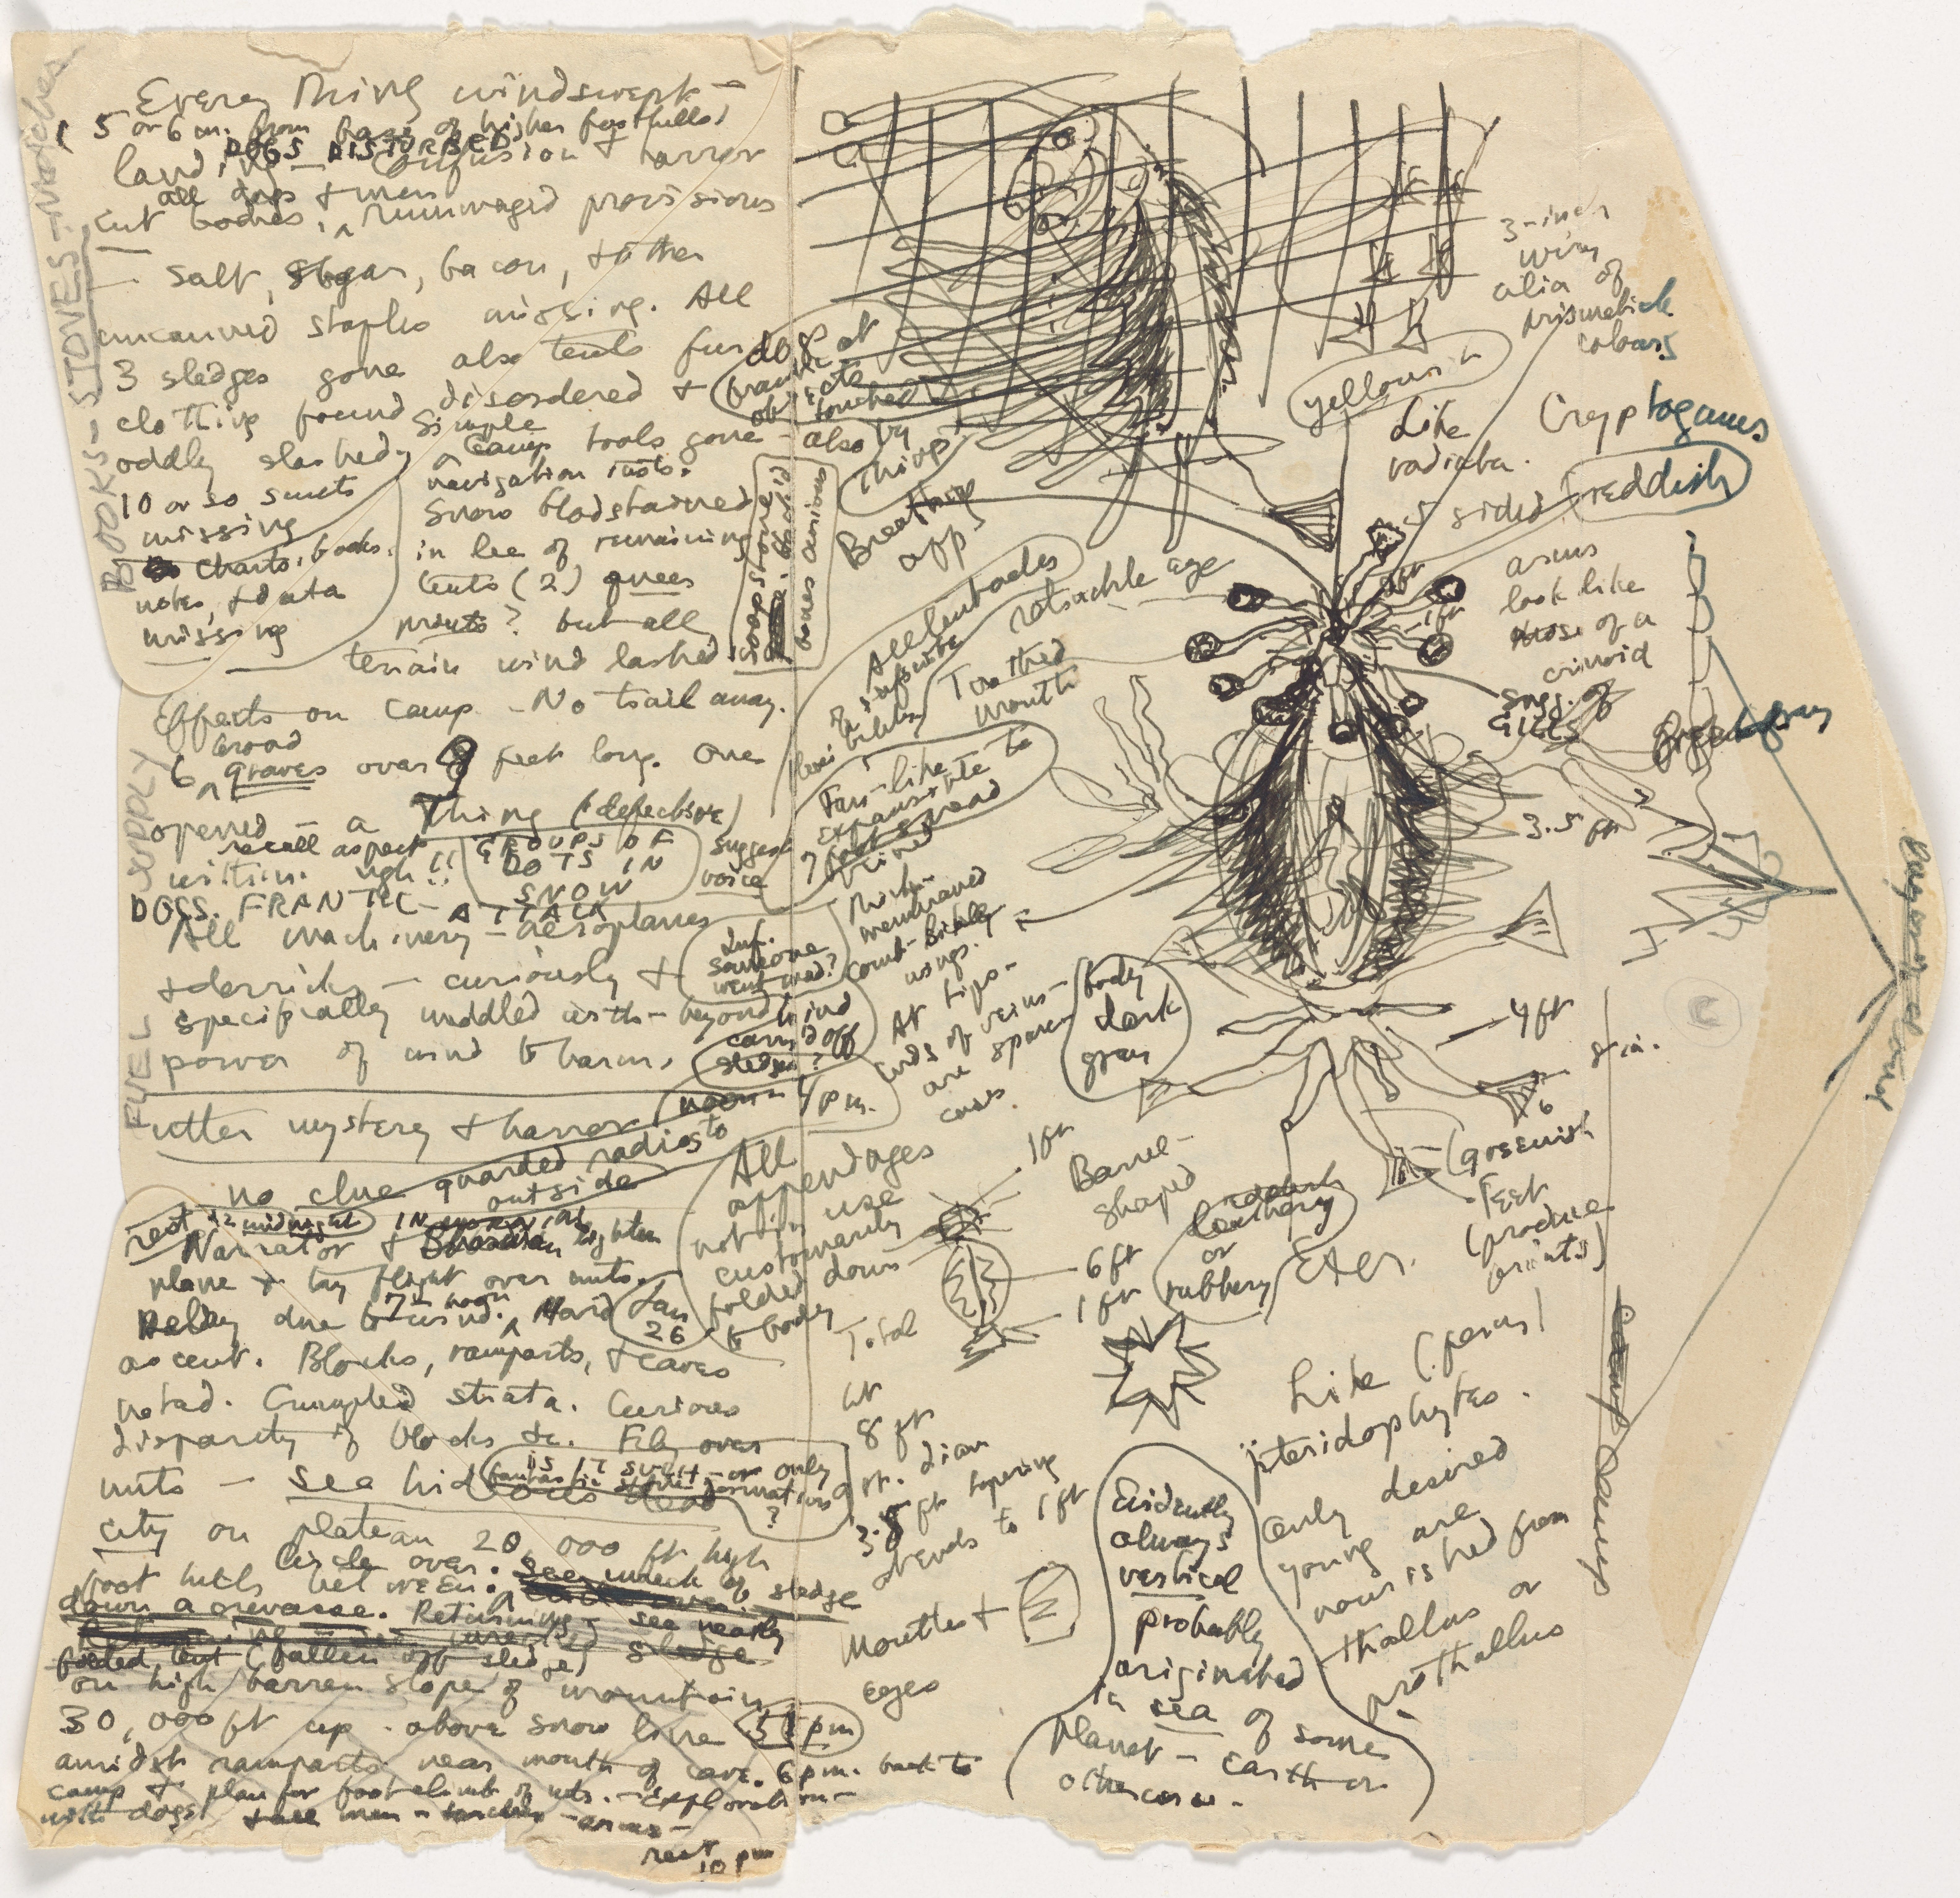 Every Thing windswept —
5 or 6 m. from base of higher foothills
DOGS DISTURBED
landing — Confusion + horror
all dogs + men
cut bodies, rummaged provisions
— salt, sugar, bacon, + other
uncanned staples missing. All
3 sledges gone also tents fur
clothing found disordered +
oddly slashed,
10 or so suits
missing
charts, books,
notes, + data
missing
BOOKS — STOVES — Matches
Simple
Camp tools gone — also
navigation insts.
Snow bloodstained
in lee of remaining
tents (2) queer
prints? but all
terrain wind lashed
soapstone
bones curious
dogs
frantic at
objects
touched
by
Things
Effects on camp — No trail away.
broad
6 graves over 9 feet long. One
opened — a Thing (defective)
recall aspect
within. ugh!!
GROUPS OF
DOTS IN
SNOW
suggest
voice
DOGS FRANTIC — ATTACK
All machinery — aeroplanes
+ derricks — curiously +
specifically meddled with — beyond
power of wind to harm.
FUEL SUPPLY
Inf.
someone
went mad?
wind
carried off
sledges?
utter mystery + horror
noon 4 pm.
no clue guarded radios to
outside
rest 12 midnight IN MORNING
Narrator + lighten
plane + try flight over mts.
7 noon
Delay due to wind. Hard
Jan
26
ascent. Blocks, ramparts, + caves
noted. Crumpled strata. Curious
disparity of blocks &c. Fly over
mts — see hideous dead
IS IT SUCH — or only
fantastic strata formations
?
city on plateau 20,000 ft high
foot hills between.
Circle over. See wreck of sledge
down a crevasse. Returning — see nearly
folded tent (fallen off sledge) sledge
on high barren slope of mountain
30,000 ft up — above snow line 5 pm
amidst ramparts near mouth of cave. 6 p.m. back to
camp + plan for foot climb of mts. — Exploration —
with dogs + all men — torches — arms —
rest
10 pm
3-inch
wiry
cilia of
prismatick
colours
yellowish
Like
radiata.
Cryptogams
5 sided
reddish
Breathing
app.
All tentacles
of infinite
flexibility
retractile eye
Toothed
mouth
2 ft
1 ft
arms
look like
those of a
crinoid
sugg. of
gills
Green gray
Fan-like
expansile to
7 foot spread
3.5 ft
membraned
comb-like
wings.
At tips —
ends of veins —
are spore
cases.
body
dark
gray
4 ft
8 in.
6
(greenish
Feet
(produce
prints)
All
appendages
not in use
customarily
folded down
to body
1 ft
6 ft
1 ft
Total
ht
8 ft
gr. diam
3.5 ft tapering
at ends to 1 ft
Barrel-
shaped
leathery
or
rubbery
Exter.
Mouths +
eyes
Like (ferns)
pteridophytes.
Only desired
young are
nourished from
thallus or
prothallus
Evidently
always
vertical
probably
originated
in sea of some
planet — earth or
otherwise.
camp
Camp